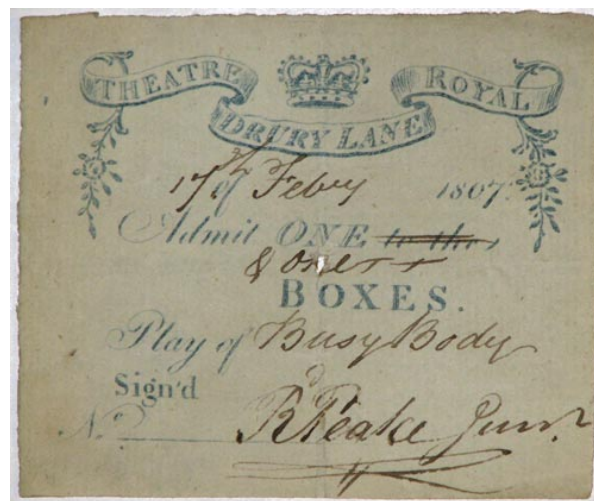 THEATRE ROYAL
DRURY LANE
17th of Febry 1807.
Admit ONE to the
& one
BOXES.
Play of Busy Body
Sign'd
No. Rd Peake Junr